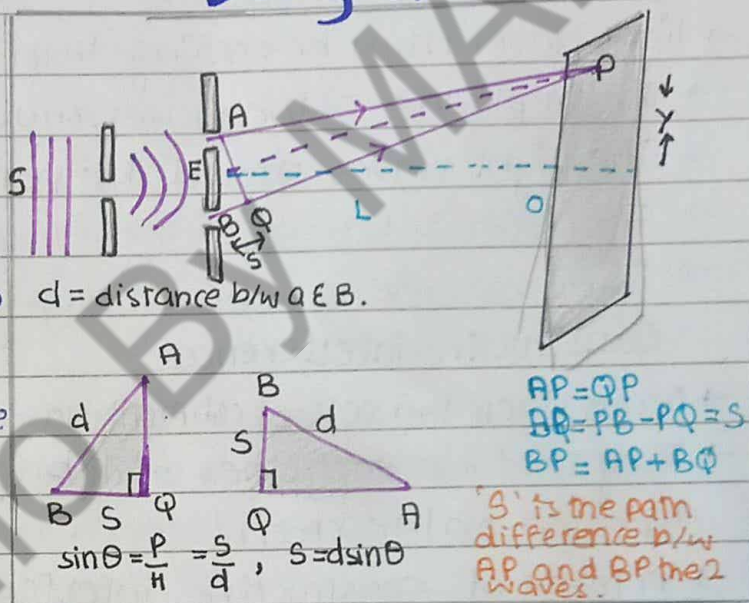 By MA
P
A
Y
S
E
B
Q
S
L
O
d = distance b/w a & B.
A
d
B S Q
B
S
d
Q
A
sinθ = P/H = S/d , S=dsinθ
AP=QP
BQ=PB-PQ=S
BP= AP+BQ
'S' is the path
difference b/w
AP and BP the 2
waves.